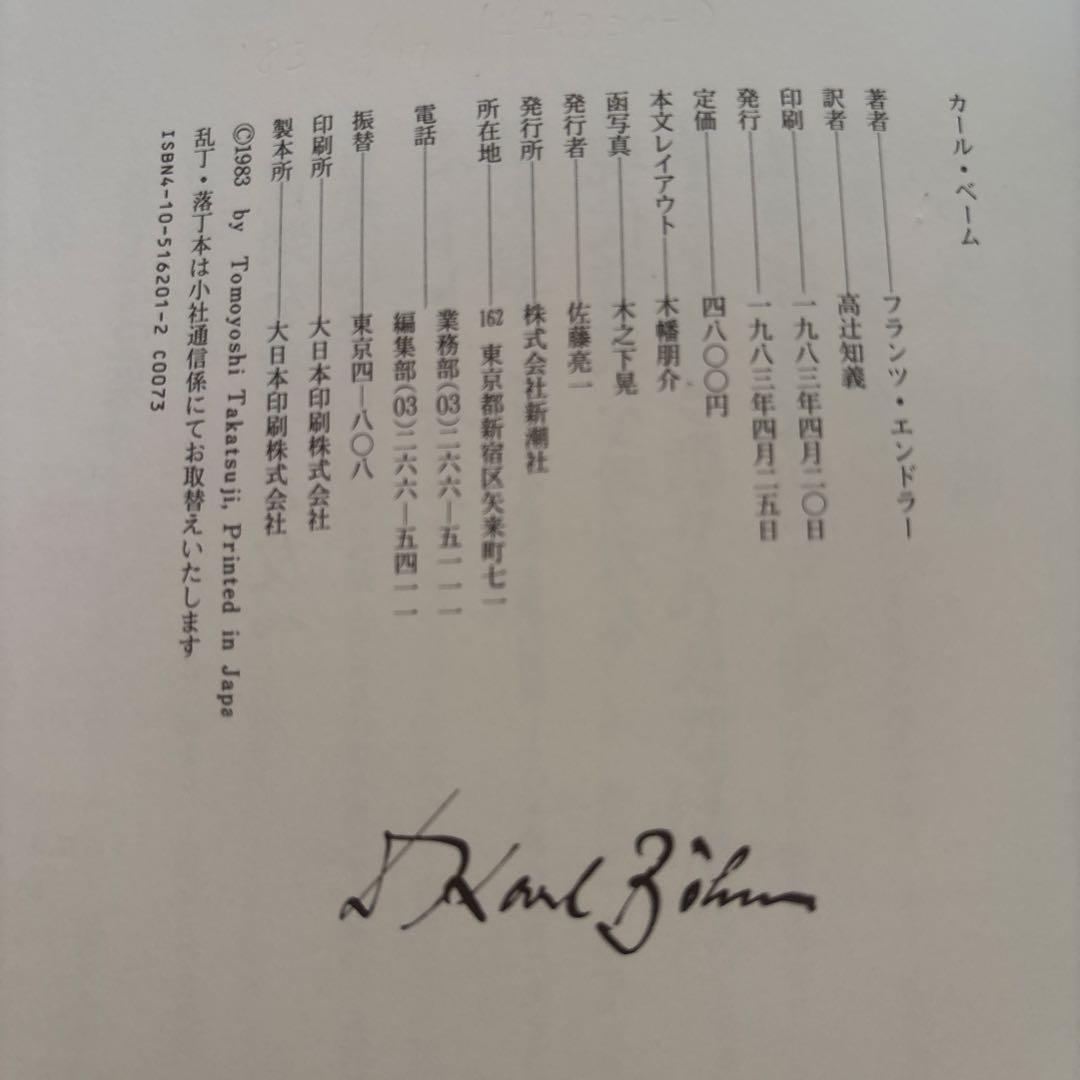 カール・ベーム
著者――フランツ・エンドラー
訳者――高辻知義
印刷――一九八三年四月二〇日
発行――一九八三年四月二五日
定価――四八〇〇円
本文レイアウト――木幡朋介
函写真――木之下晃
発行者――佐藤亮一
発行所――株式会社新潮社
所在地――162 東京都新宿区矢来町七一
電話――業務部(03)二六六―五一一一
編集部(03)二六六―五四一一
振替――東京四―八〇八
印刷所――大日本印刷株式会社
製本所――大日本印刷株式会社
©1983 by Tomoyoshi Takatsuji, Printed in Japa
乱丁・落丁本は小社通信係にてお取替えいたします
ISBN4-10-516201-2 C0073
Karl Böhm